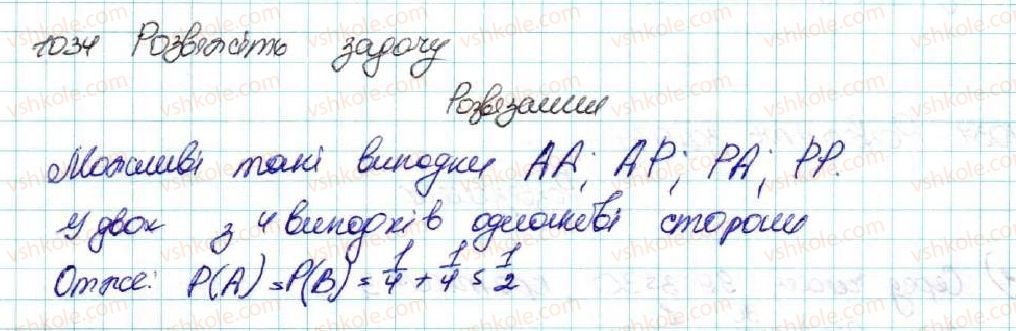 1034 Розв'яжіть задачу
Розв'язання
Можливі такі випадки АА; АР; РА; РР.
У двох з 4 випадків однакові сторони
Отже: P(A) = P(B) = 1/4 + 1/4 = 1/2